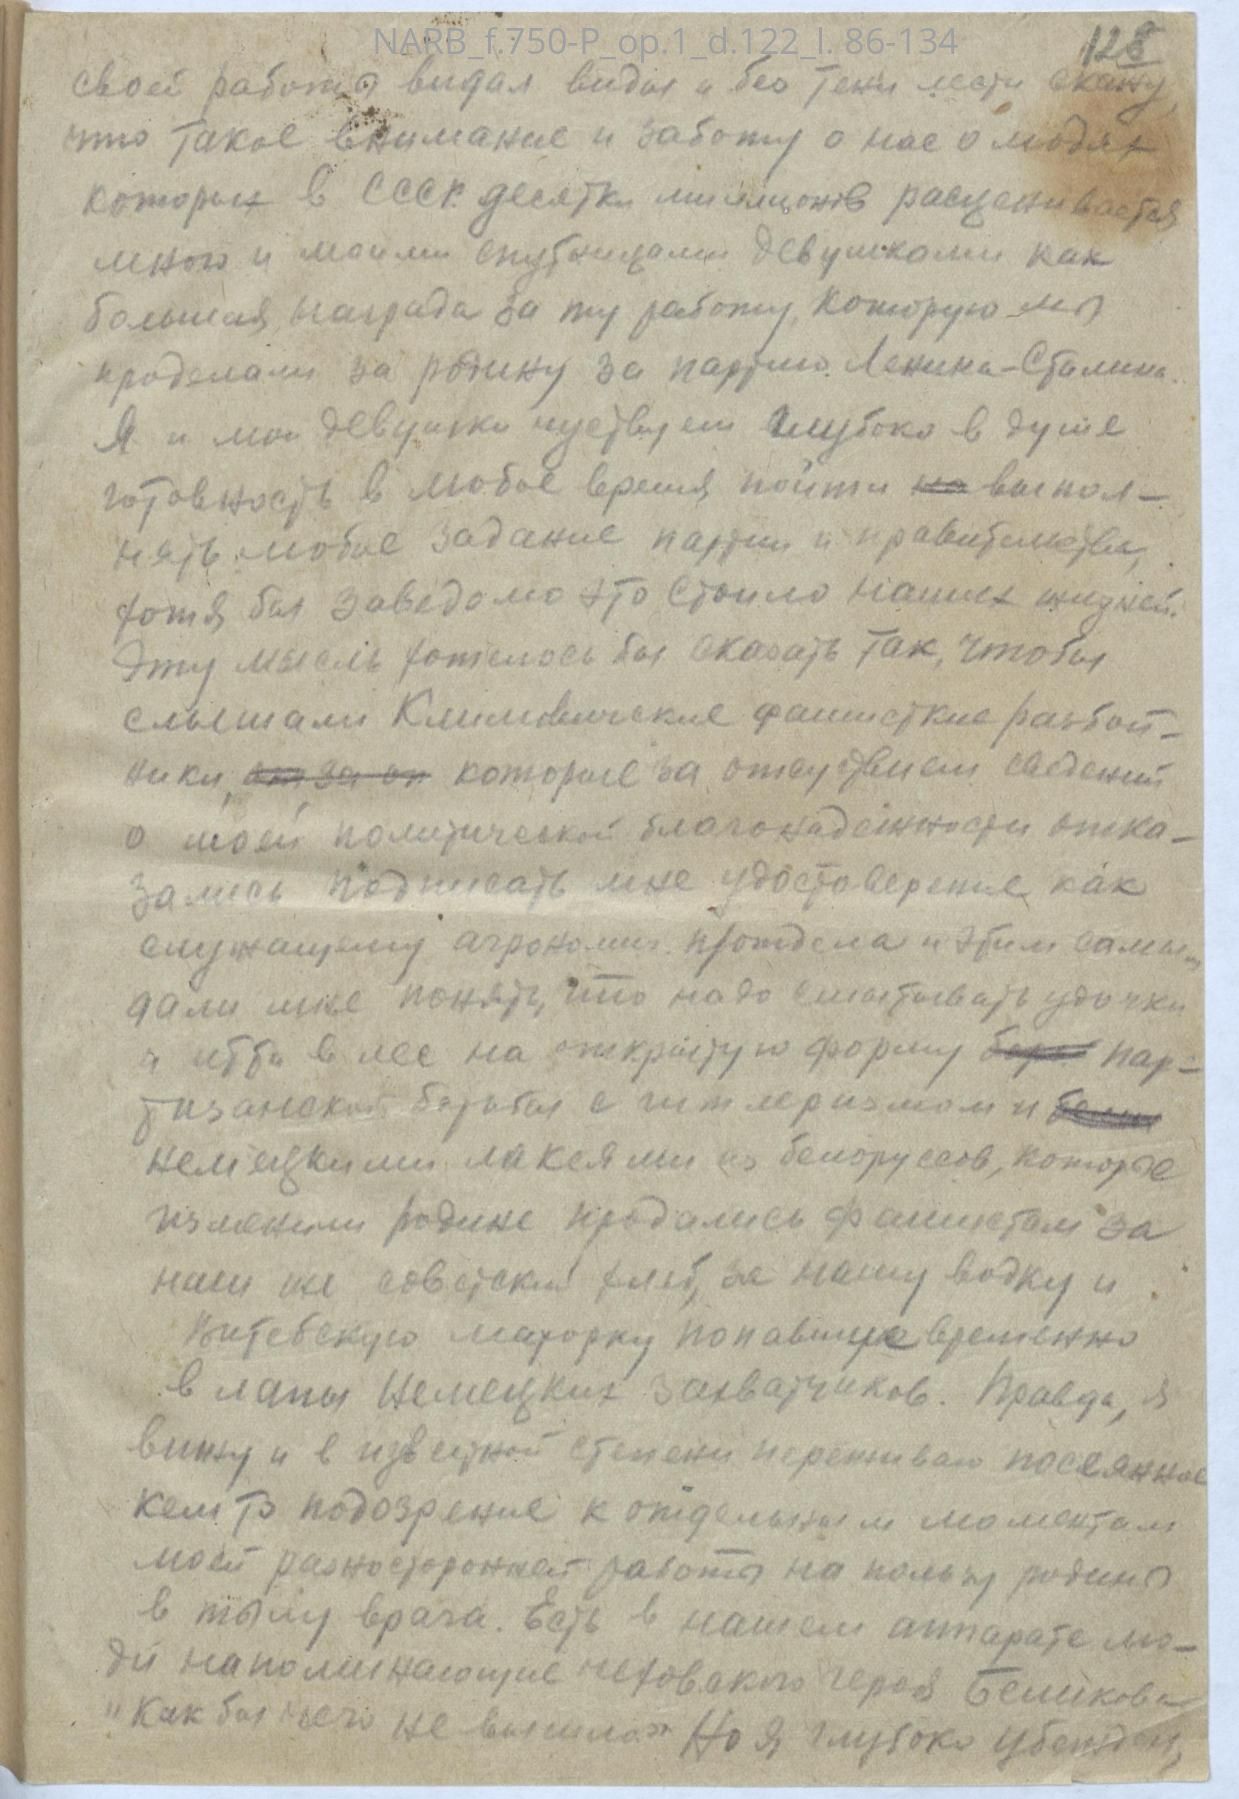 NARB_f.750-P_op.1_d.122_l. 86-134
128
своей работы видал виды и без тени лести скажу,
что такое внимание и заботу о нас о людях
которых в СССР десятки миллионов расценивается
мною и моими спутницами девушками как
большая награда за ту работу, которую мы
проделали за родину за партию Ленина-Сталина.
Я и мои девушки чуствуем глубоко в душе
готовность в любое время пойти на выпол-
нять любое задание партии и правительства,
хотя бы заведомо это стоило наших жизней.
Эту мысль хотелось бы сказать так, чтобы
слышали Климовичские фашисткие разбой-
ники, которые за отсутствием сведений
о моей политической благонадежности отка-
зались подписать мне удостоверение как
служащему агрономич. протдела и этим самым
дали мне понять, что надо сматывать удочки
и итти в лес на открытую форму пар-
тизанской борьбы с гитлеризмом и
немецкими лакеями из белоруссов, которые
изменили родине продались фашистам за
наш же советский хлеб, за нашу водку и
Витебскую махорку попавшую временно
в лапы немецких захватчиков. Правда, я
вижу и в известной степени переживаю посеянное
кем то подозрение к отдельным моментам
моей разносторонней работы на пользу родины
в тылу врага. Есть в нашем аппарате лю-
ди напоминающие чеховского героя Беликова
"Как бы чего не вышло" Но я глубоко убежден,